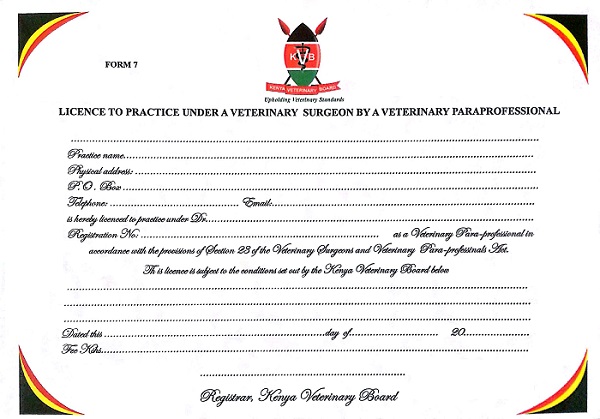 FORM 7
KVB
KENYA VETERINARY BOARD
Upholding Veterinary Standards
LICENCE TO PRACTICE UNDER A VETERINARY SURGEON BY A VETERINARY PARAPROFESSIONAL
Practice name
Physical address:
P.O. Box
Telephone: Email:
is hereby licenced to practice under Dr.
Registration No: as a Veterinary Para-professional in
accordance with the provisions of Section 23 of the Veterinary Surgeons and Veterinary Para-professinals Act.
Th is licence is subject to the conditions set out by the Kenya Veterinary Board below
Dated this day of 20
Fee Kshs.
Registrar, Kenya Veterinary Board